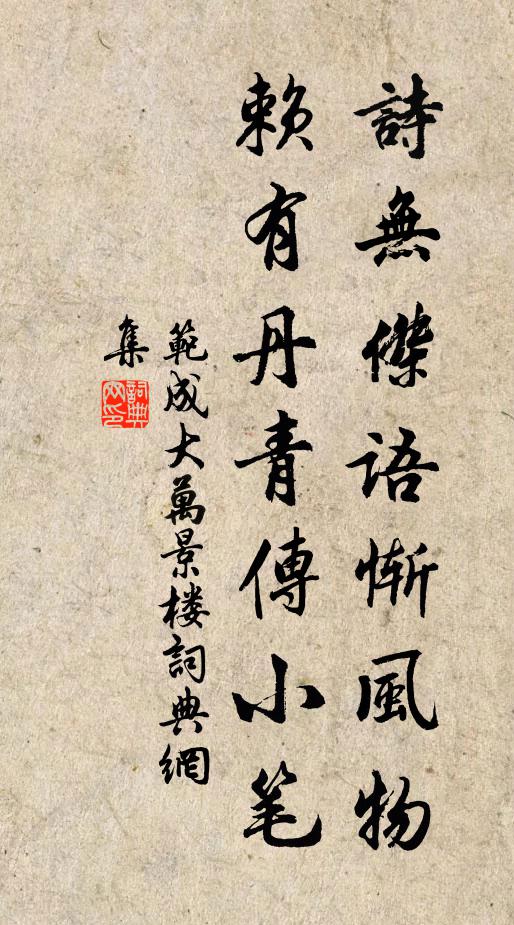 詩無傑語慚風物
賴有丹青傳小笔
範成大萬景楼詞典網
集
詞典
网印